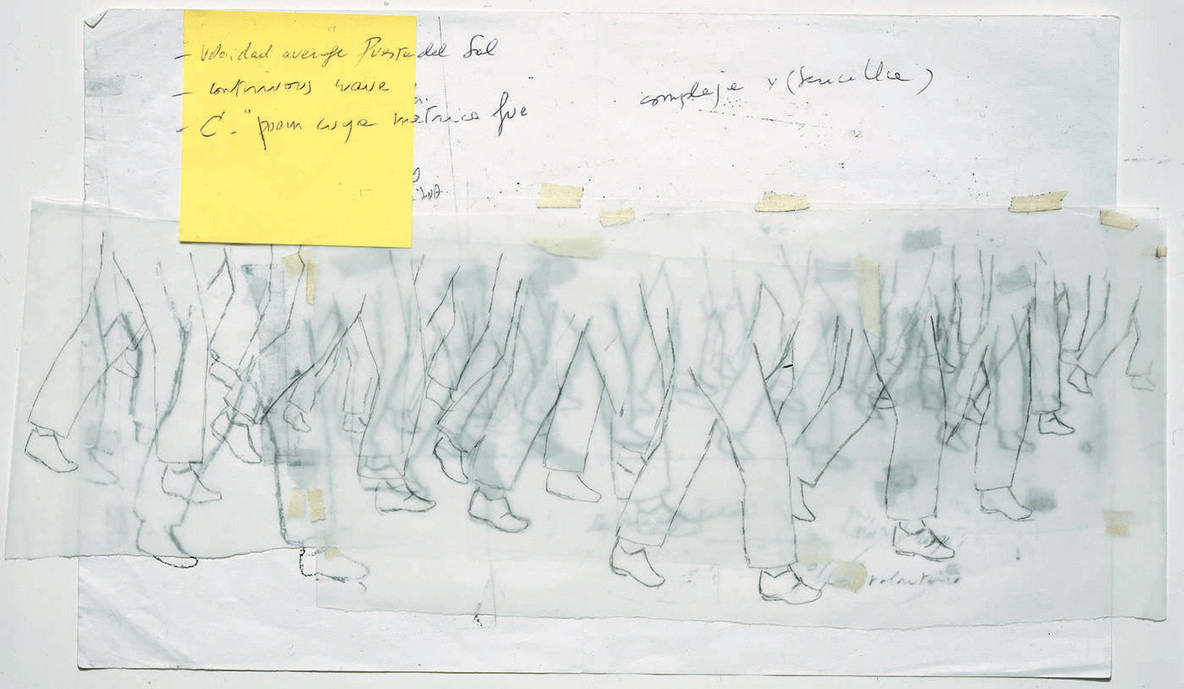 - Velocidad average Puesta del Sol
- continuous wave
- C. "poem cuya métrica fue
compleja y (sencilla)
voluntario